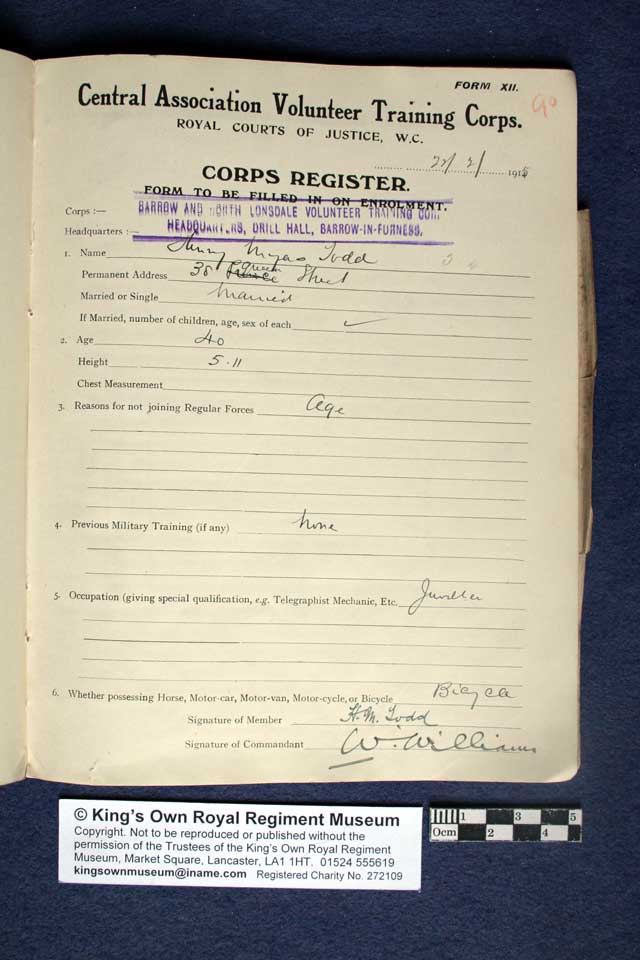 FORM XII.
90
Central Association Volunteer Training Corps.
ROYAL COURTS OF JUSTICE, W.C.
22/2/1915
CORPS REGISTER.
FORM TO BE FILLED IN ON ENROLMENT.
Corps :— BARROW AND NORTH LONSDALE VOLUNTEER TRAINING COR
Headquarters :— HEADQUARTERS, DRILL HALL, BARROW-IN-FURNESS.
1. Name Henry Myas Todd
Permanent Address 38 Queen Street
Married or Single Married
If Married, number of children, age, sex of each
2. Age 40
Height 5.11
Chest Measurement
3. Reasons for not joining Regular Forces Age
4. Previous Military Training (if any) None
5. Occupation (giving special qualification, e.g. Telegraphist Mechanic, Etc. Jeweller
6. Whether possessing Horse, Motor-car, Motor-van, Motor-cycle, or Bicycle Bicycle
Signature of Member H.M. Todd
Signature of Commandant W. Williams
© King's Own Royal Regiment Museum
Copyright. Not to be reproduced or published without the
permission of the Trustees of the King's Own Royal Regiment
Museum, Market Square, Lancaster, LA1 1HT. 01524 555619
kingsownmuseum@iname.com Registered Charity No. 272109
1 3 5
0cm 2 4